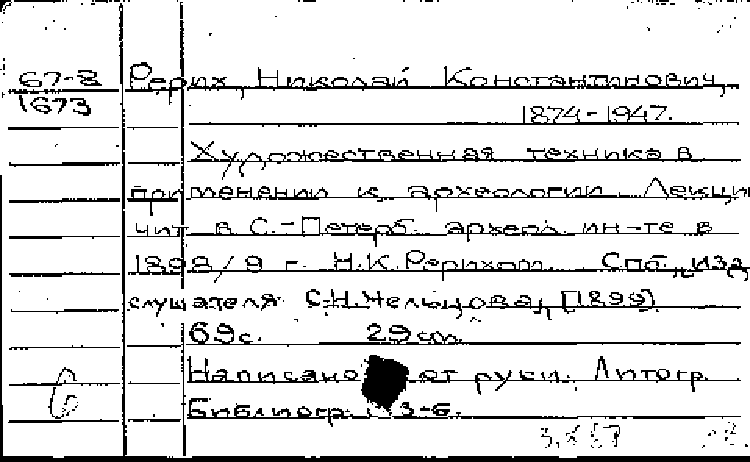 67-8 Рерих, Николай Константинович,
1673
1874-1947.
Художественная техника в
применении к археологии. Лекции
чит. в С.-Петерб. археол. ин-те в
1898/9 г. Н.К. Рерихом. Спб., изд.
слушателя С.Н. [1899]
69 с. 29 см.
Написано от руки. Литогр.
Библиогр. 3-6.
6